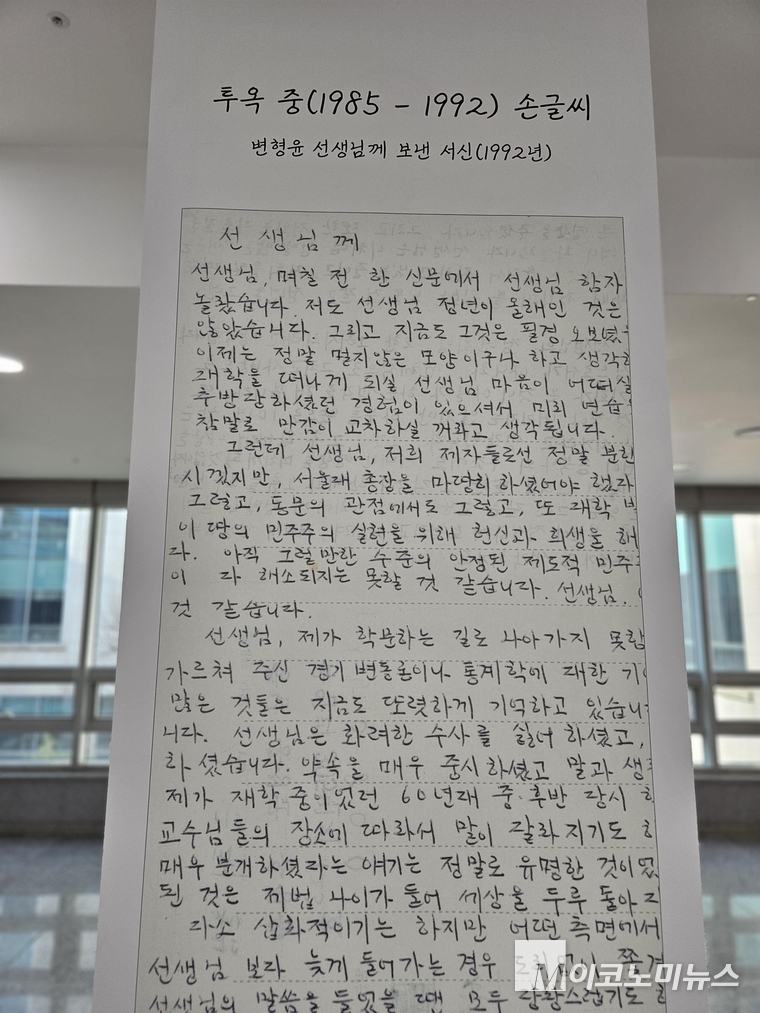 투옥 중(1985 - 1992) 손글씨
변형윤 선생님께 보낸 서신(1992년)
선생님께
선생님, 며칠 전 한 신문에서 선생님 함자
놀랐습니다. 저도 선생님 정년이 올해인 것은
않았습니다. 그리고 지금도 그것은 필경 오보였
이제는 정말 멀지않은 모양이구나 하고 생각
대학을 떠나게 되실 선생님 마음이 어떠실
추방당하셨던 경험이 있으셔서 미리 연습
참말로 만감이 교차하실 꺼라고 생각됩니다.
그런데 선생님, 저희 제자들로선 정말 분한
시겠지만, 서울대 총장을 마땅히 하셨어야 했다
그렇고, 동문의 관점에서도 그렇고, 또 대학
이 땅의 민주주의 실현을 위해 헌신과 희생을 해
다. 아직 그럴만한 수준의 안정된 제도적 민주
이 다 해소되지는 못할 것 같습니다. 선생님.
것 같습니다.
선생님, 제가 학문하는 길로 나아가지 못함
가르쳐 주신 경기변동론이나 통계학에 대한 기
많은 것들은 지금도 또렷하게 기억하고 있습니
니다. 선생님은 화려한 수사를 싫어 하셨고,
하셨습니다. 약속을 매우 중시하셨고 말과
제가 재학중이었던 60년대 중·후반 당시
교수님들의 장소에 따라서 말이 달라지기도
매우 분개하셨다는 얘기는 정말로 유명한 것이었
된 것은 제법 나이가 들어 세상을 두루 돌아
다소 삽화적이기는 하지만 어떤 측면에서
선생님 보다 늦게 들어가는 경우
선생님의 말씀을 들었을 땐 모두 당황스럽기도
M이코노미뉴스